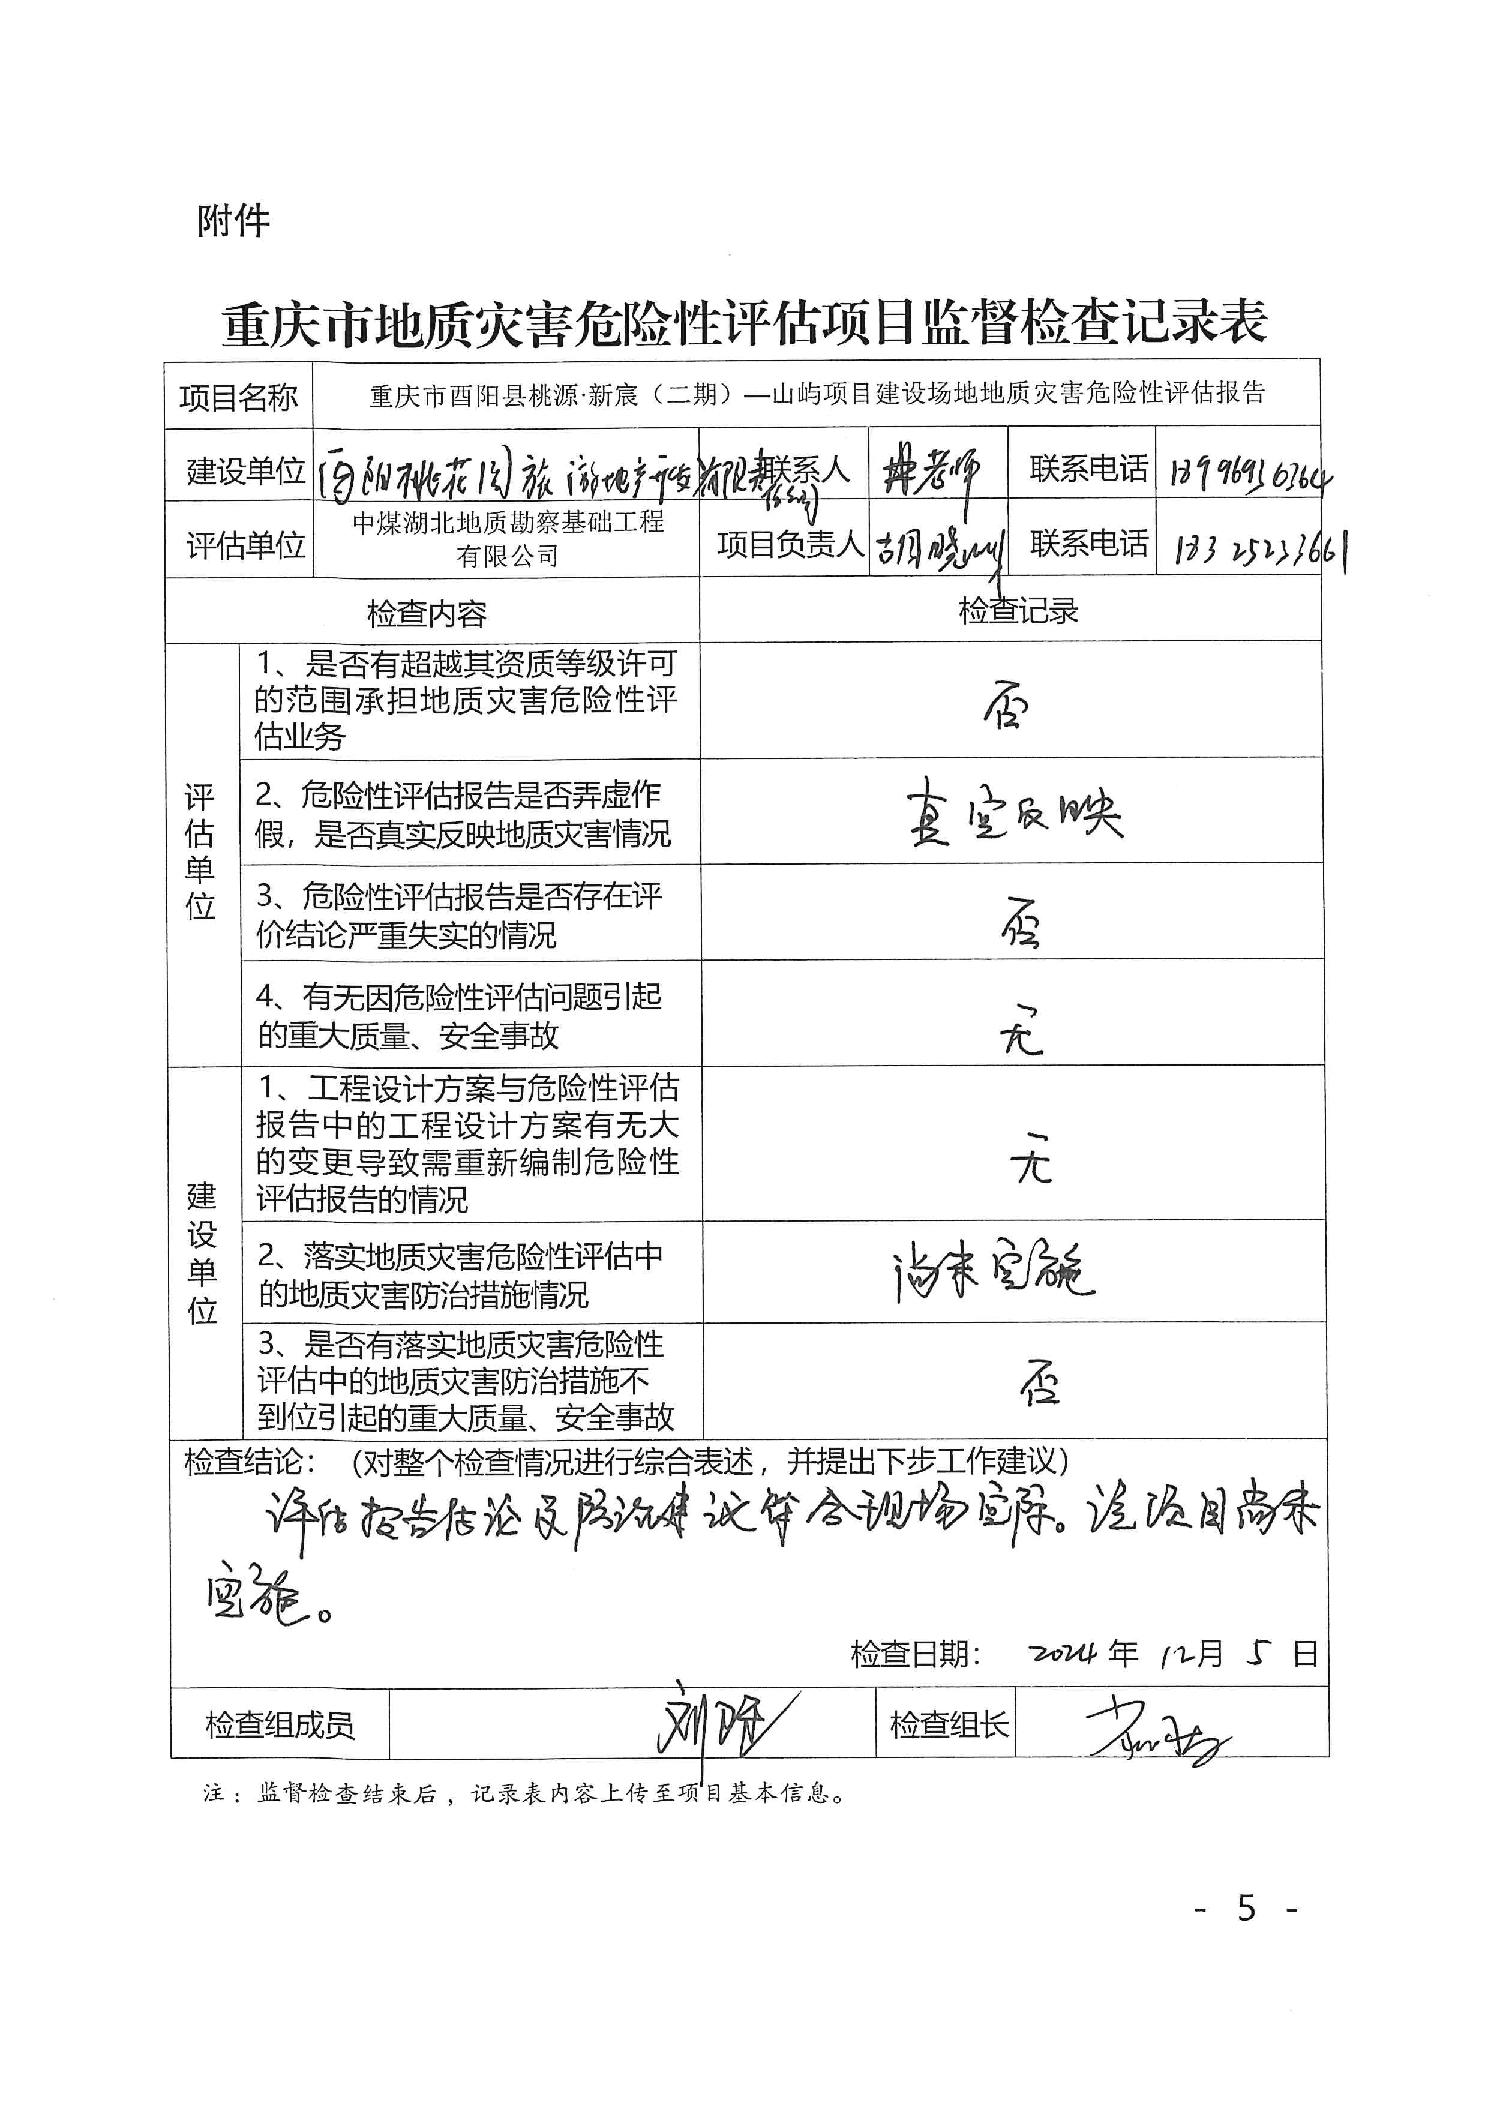 附件
重庆市地质灾害危险性评估项目监督检查记录表
项目名称 重庆市酉阳县桃源·新宸（二期）—山屿项目建设场地地质灾害危险性评估报告
建设单位 酉阳桃花园旅游地产开发有限责 联系人 冉老师 联系电话 18996936364
任公司
评估单位 中煤湖北地质勘察基础工程 项目负责人 胡晓 联系电话 18325233661
有限公司
检查内容 检查记录
评估单位
1、是否有超越其资质等级许可
的范围承担地质灾害危险性评
估业务
否
2、危险性评估报告是否弄虚作
假，是否真实反映地质灾害情况
真实反映
3、危险性评估报告是否存在评
价结论严重失实的情况
否
4、有无因危险性评估问题引起
的重大质量、安全事故
无
建设单位
1、工程设计方案与危险性评估
报告中的工程设计方案有无大
的变更导致需重新编制危险性
评估报告的情况
无
2、落实地质灾害危险性评估中
的地质灾害防治措施情况
尚未实施
3、是否有落实地质灾害危险性
评估中的地质灾害防治措施不
到位引起的重大质量、安全事故
否
检查结论：（对整个检查情况进行综合表述，并提出下步工作建议）
评估报告结论及防治建议符合现场实际。该项目尚未
实施。
检查日期： 2024 年 12 月 5 日
检查组成员 刘 检查组长
注：监督检查结束后，记录表内容上传至项目基本信息。
- 5 -